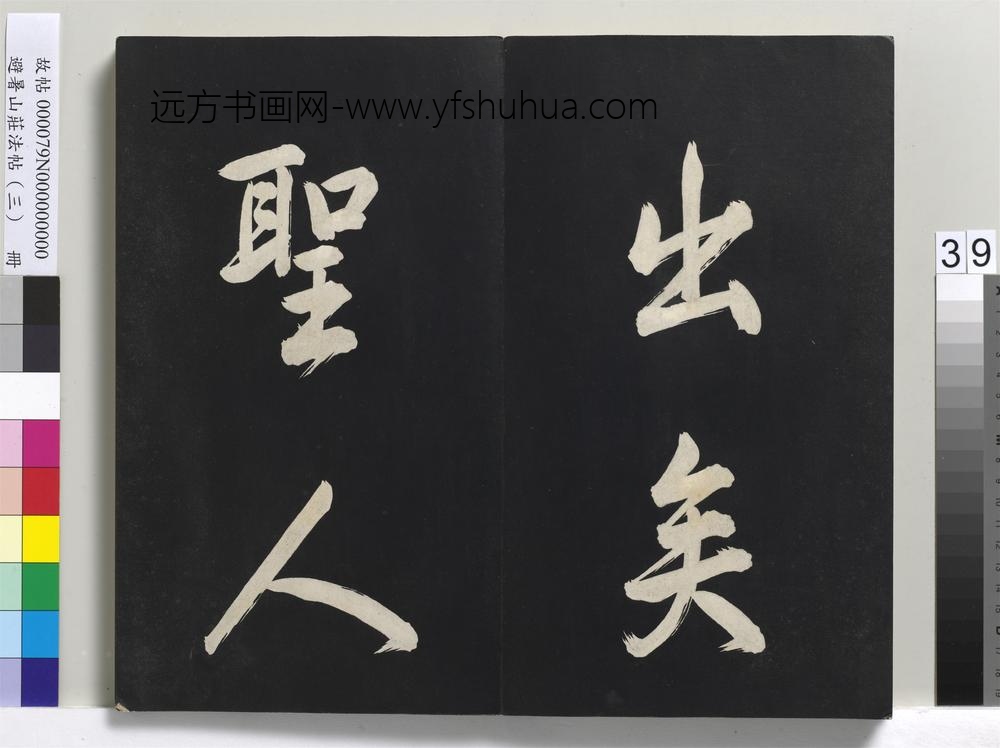 出矣
聖人
远方书画网-www.yfshuhua.com
故帖 000079N000000000
避暑山莊法帖（三） 冊
39